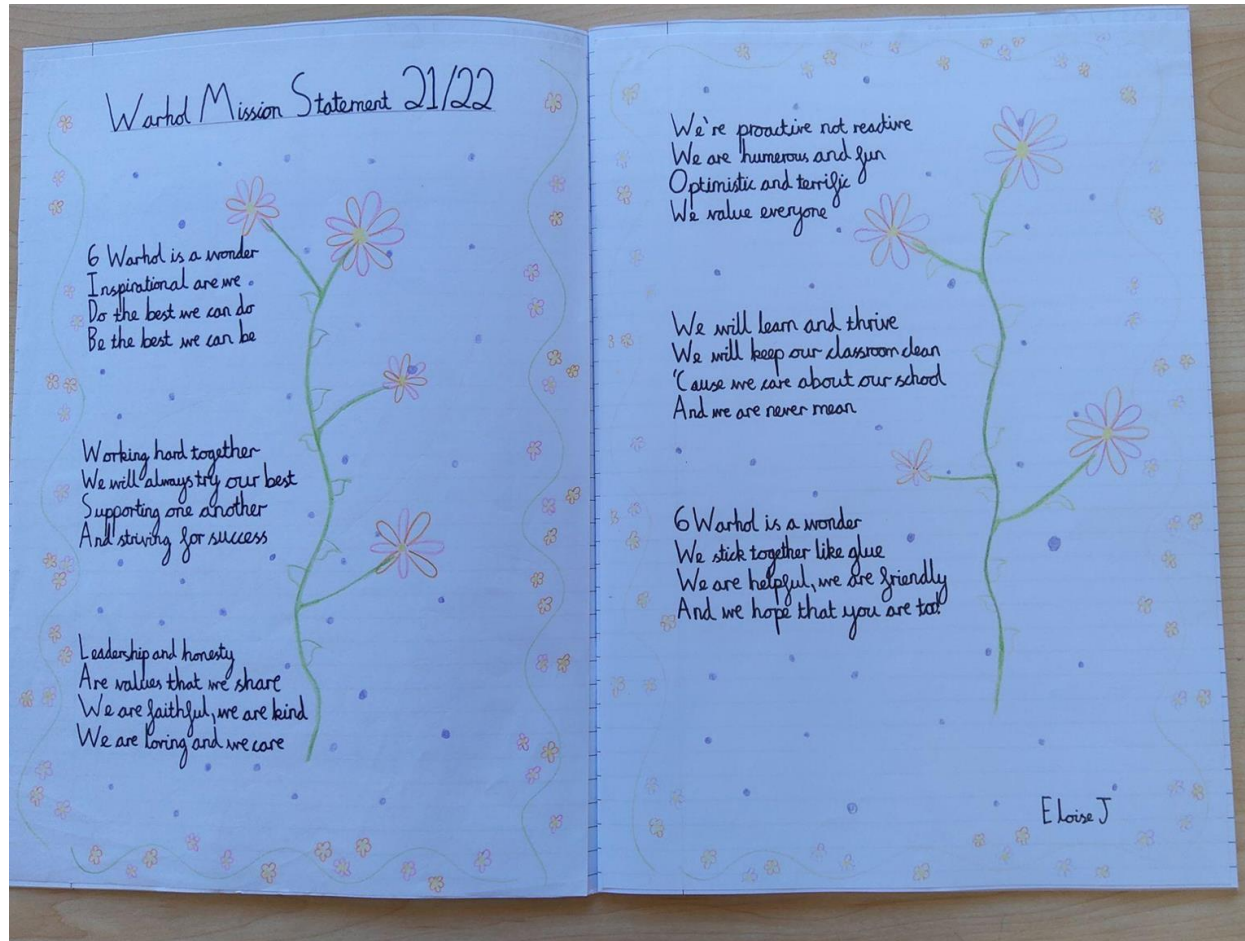 Warhol Mission Statement 21/22
6 Warhol is a wonder
Inspirational are we.
Do the best we can do
Be the best we can be
Working hard together
We will always try our best
Supporting one another
And striving for success
Leadership and honesty
Are values that we share
We are faithful, we are kind
We are loving and we care
We're proactive not reactive
We are humerous and fun
Optimistic and terrific
We value everyone
We will learn and thrive
We will keep our classroom clean
'Cause we care about our school
And we are never mean
6 Warhol is a wonder
We stick together like glue
We are helpful, we are friendly
And we hope that you are too!
Eloise J